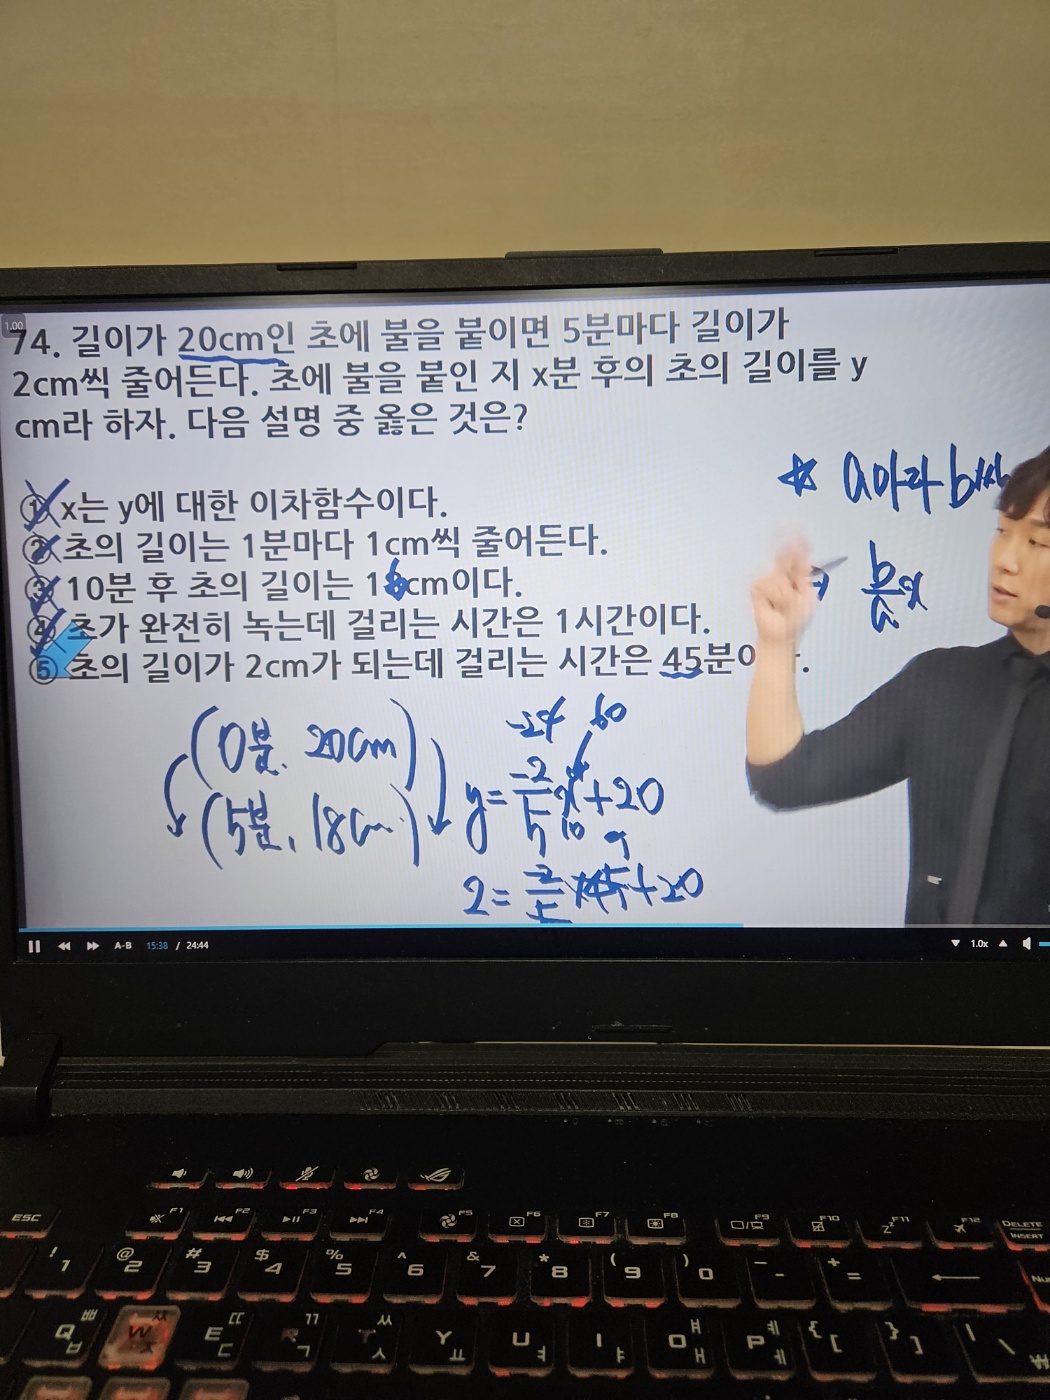 1.00
74. 길이가 20cm인 초에 불을 붙이면 5분마다 길이가
2cm씩 줄어든다. 초에 불을 붙인 지 x분 후의 초의 길이를 y
cm라 하자. 다음 설명 중 옳은 것은?
① x는 y에 대한 이차함수이다.
② 초의 길이는 1분마다 1cm씩 줄어든다.
③ 10분 후 초의 길이는 16cm이다.
④ 초가 완전히 녹는데 걸리는 시간은 1시간이다.
⑤ 초의 길이가 2cm가 되는데 걸리는 시간은 45분이 .
☆ a마다 b씩
b/a x
(0분, 20cm)
(5분, 18cm)
-24 60
y = -2/5 x + 20
10 9
2 = -2/5 × 45 + 20
A-B 15:38 / 24:44
1.0x
ESC F1 F2 F3 F4 F5 F6 F7 F8 F9 F10 F11 F12 DELETE INSERT
! 1 @ 2 # 3 $ 4 % 5 ^ 6 & 7 * 8 ( 9 ) 0 _ - + =
Q ㅃ ㅂ W ㅉ ㅈ E ㄸ ㄷ R ㄲ ㄱ T ㅆ ㅅ Y ㅛ U ㅕ I ㅑ O ㅒ ㅐ P ㅖ ㅔ { [ } ] | \ ₩